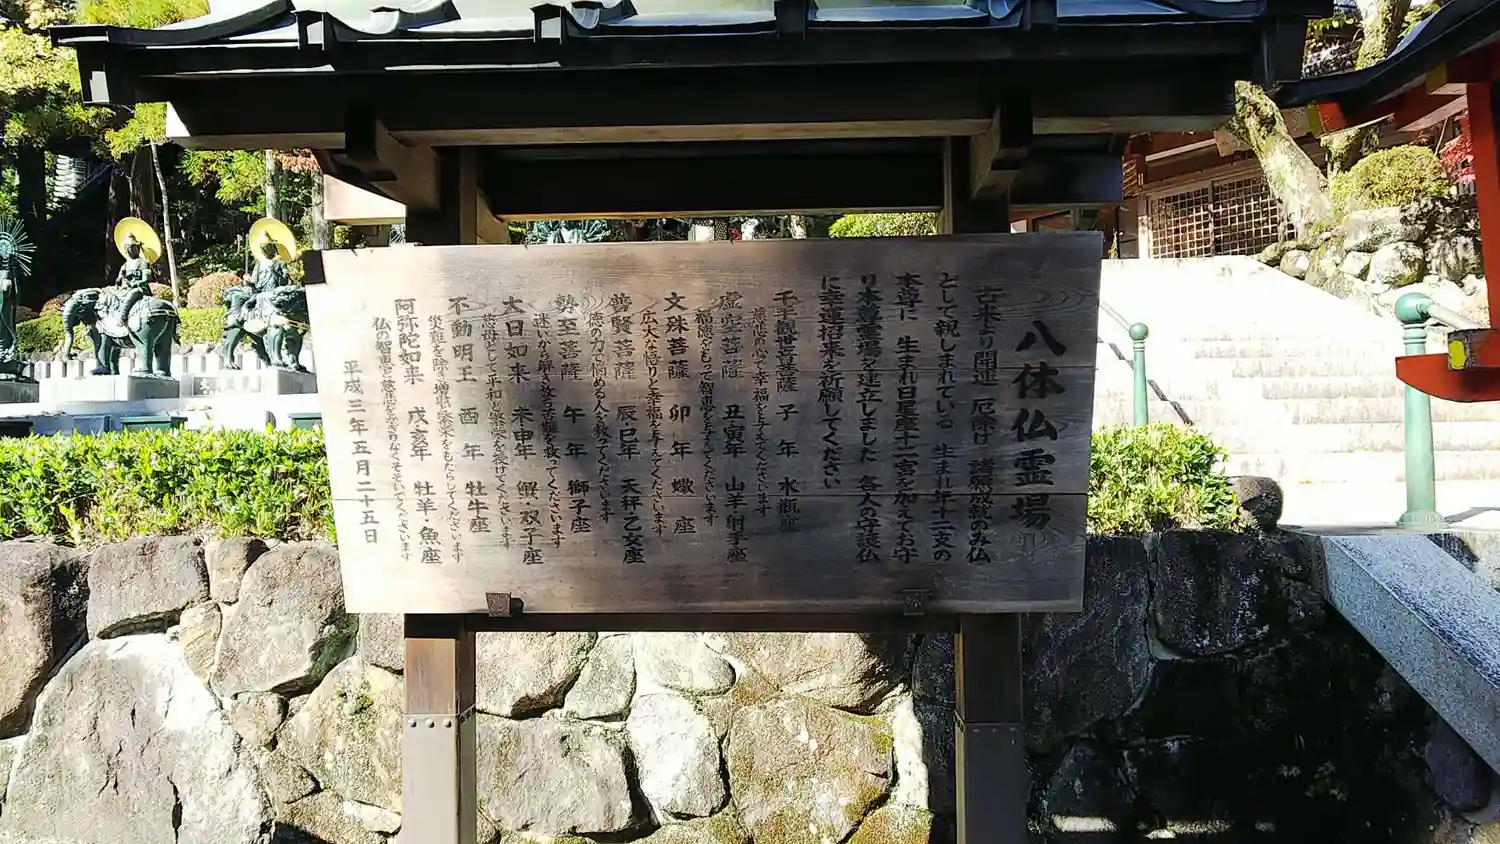 八体仏霊場
古来より開運 厄除け 諸願成就のみ仏
として親しまれている 生まれ年十二支の
本尊に 生まれ日星座十二宮を加えてお守
り本尊霊場を建立しました 各人の守護仏
に幸運招来を祈願してください
千手観世音菩薩 子年 水瓶座
慈悲の心で幸福を与えてくださいます
虚空菩薩 丑寅年 山羊・射手座
福徳をもって智恵を与えてくださいます
文殊菩薩 卯年 蠍座
広大な悟りと幸福を与えてくださいます
普賢菩薩 辰・巳年 天秤・乙女座
徳の力で悩める人を救てくださいます
勢至菩薩 午年 獅子座
迷いから解き放ち苦難を救ってくださいます
大日如来 未申年 蟹・双子座
慈母として平和と繁栄を授けてくださいます
不動明王 酉年 牡牛座
災難を除き増益・繁栄をもたらしてくださいます
阿弥陀如来 戌亥年 牡羊・魚座
仏の智恵と慈悲をかぎりなくそそいでくださいます
平成三年五月二十五日